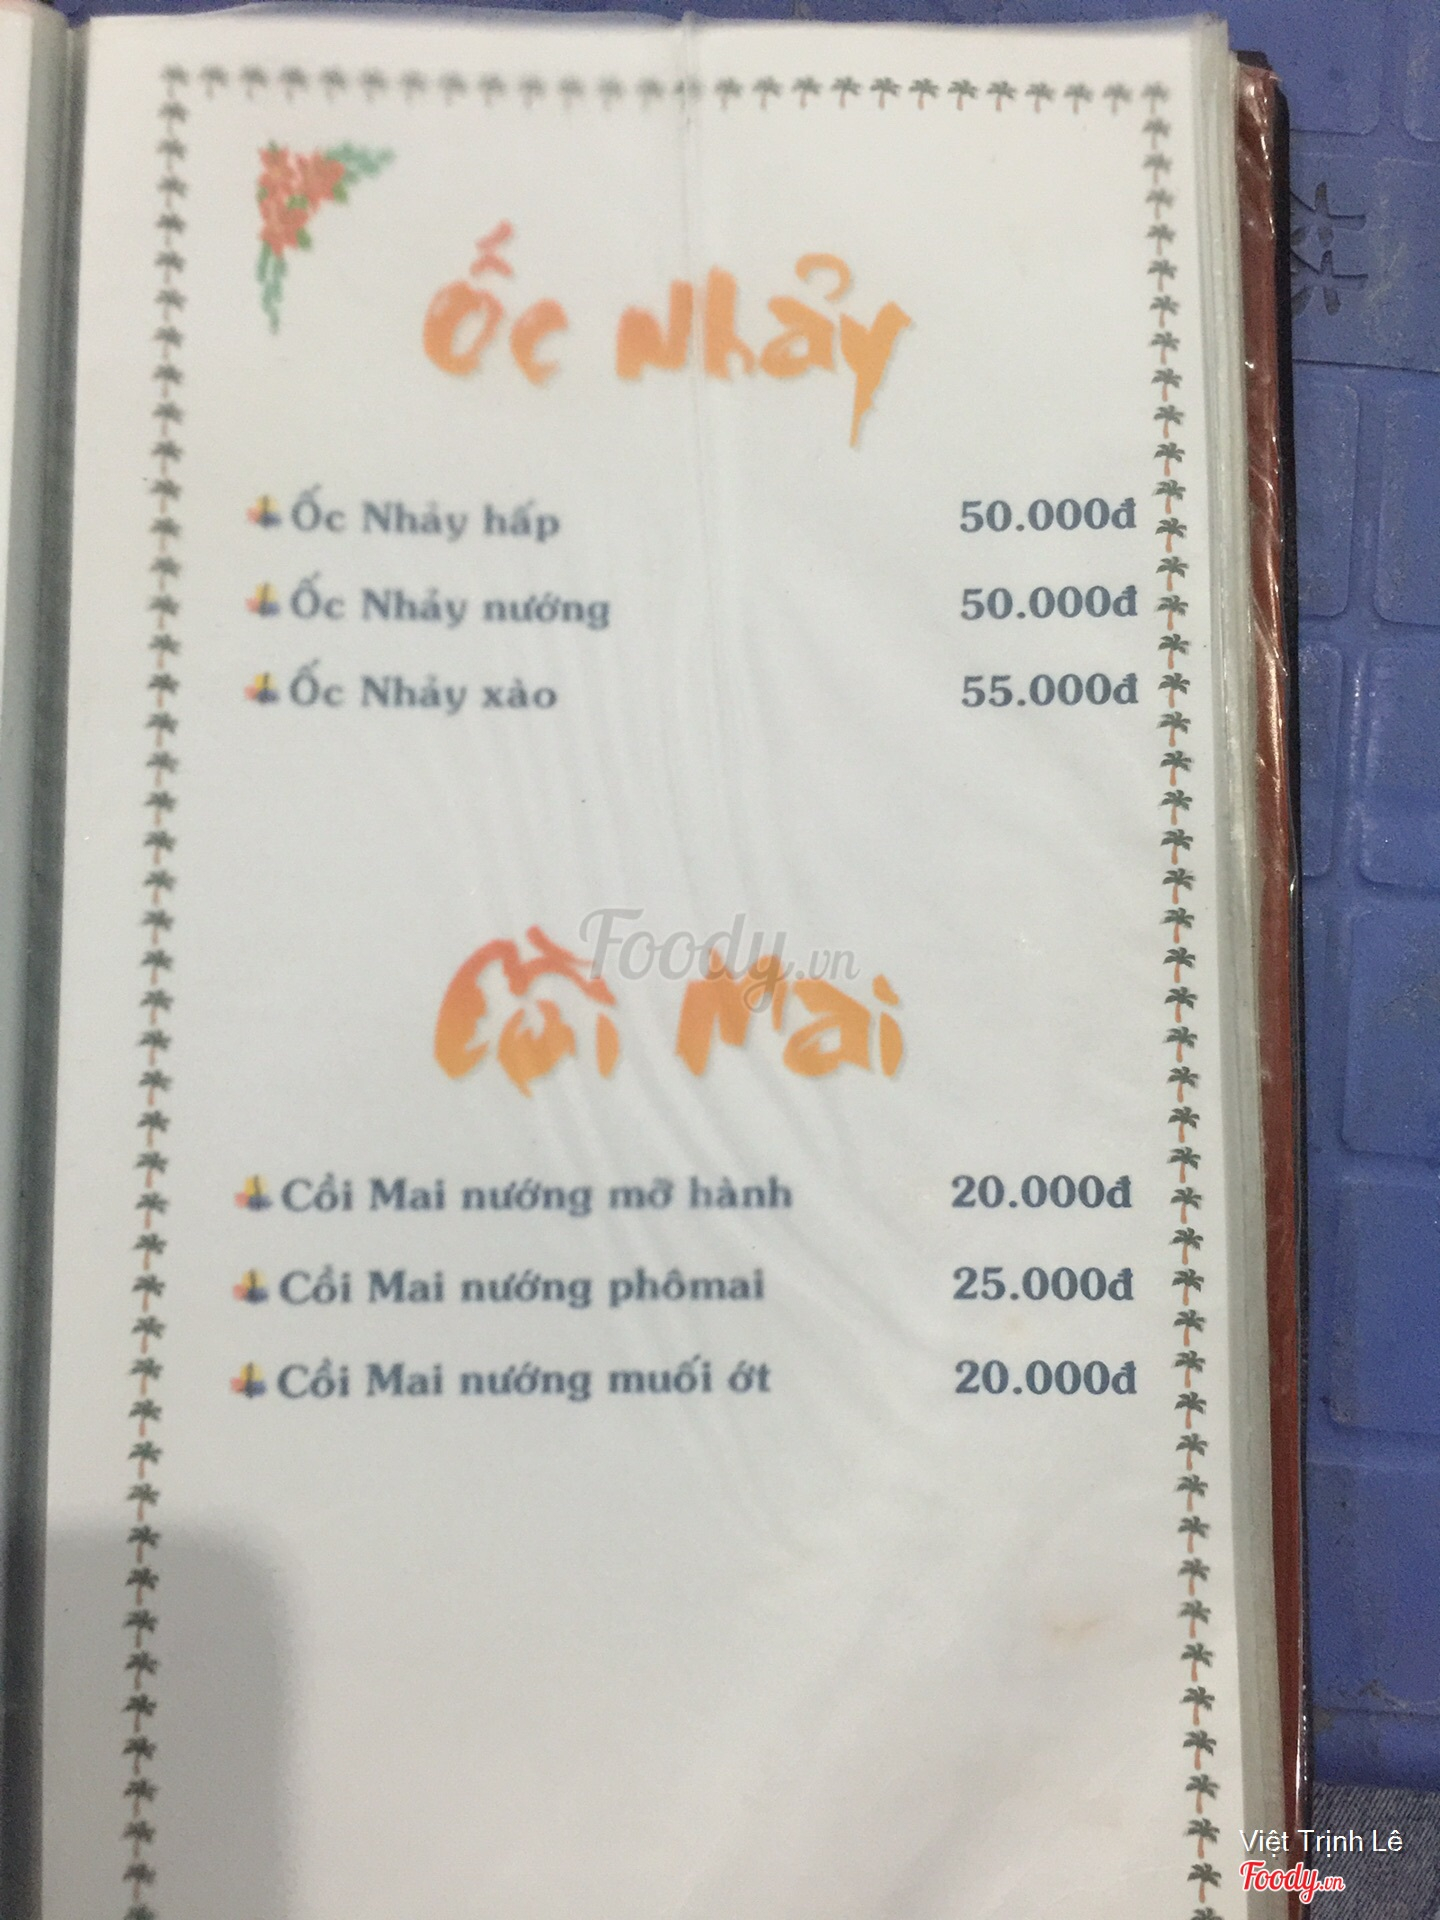 Ốc Nhảy
Ốc Nhảy hấp 50.000đ
Ốc Nhảy nướng 50.000đ
Ốc Nhảy xào 55.000đ
Foody.vn
Cồi Mai
Cồi Mai nướng mỡ hành 20.000đ
Cồi Mai nướng phômai 25.000đ
Cồi Mai nướng muối ớt 20.000đ
Việt Trịnh Lê
Foody.vn